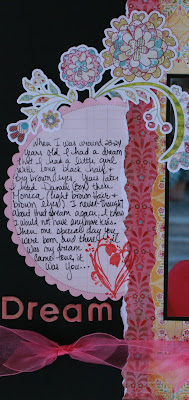 When I was around 20-21
years old I had a dream
that I had a little girl
with long black hair &
big brown eyes. Years later
I had (boy) then
Monica (light brown hair &
brown eyes)). I never thought
about that dream again. I knew
I would not have anymore kids.
Then one special day you
were born and there
was my dream
came true, it
was You...
Dream